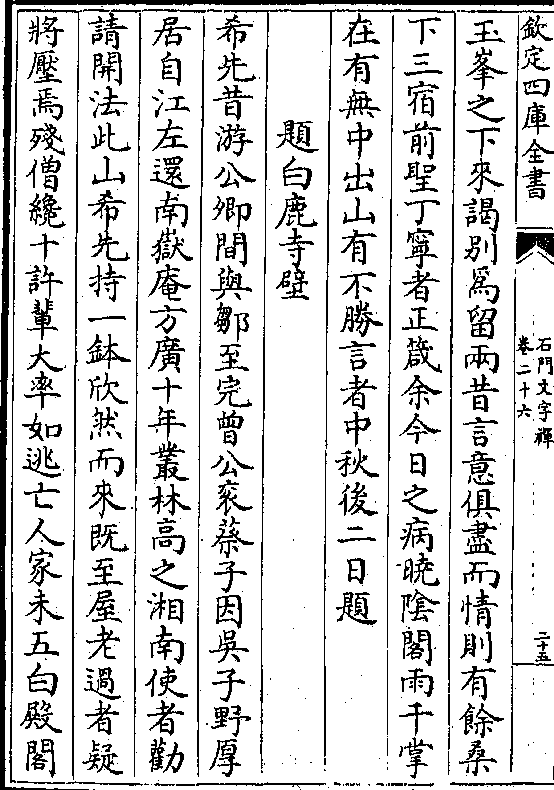 欽定四庫全書
石門文字禪
卷二十六
二十五
玉峯之下來謁別爲留兩昔言意俱盡而情則有餘桑
下三宿前聖丁寧者正箴余今日之病曉陰閣雨千掌
在有無中出山有不勝言者中秋後二日題
題白鹿寺壁
希先昔游公卿間與鄒至完曾公衮蔡子因吳子野厚
居自江左還南嶽庵方廣十年叢林高之湘南使者勸
請開法此山希先持一鉢欣然而來既至屋老過者疑
將壓焉殘僧纔十許輩大率如逃亡人家未五白殿閣